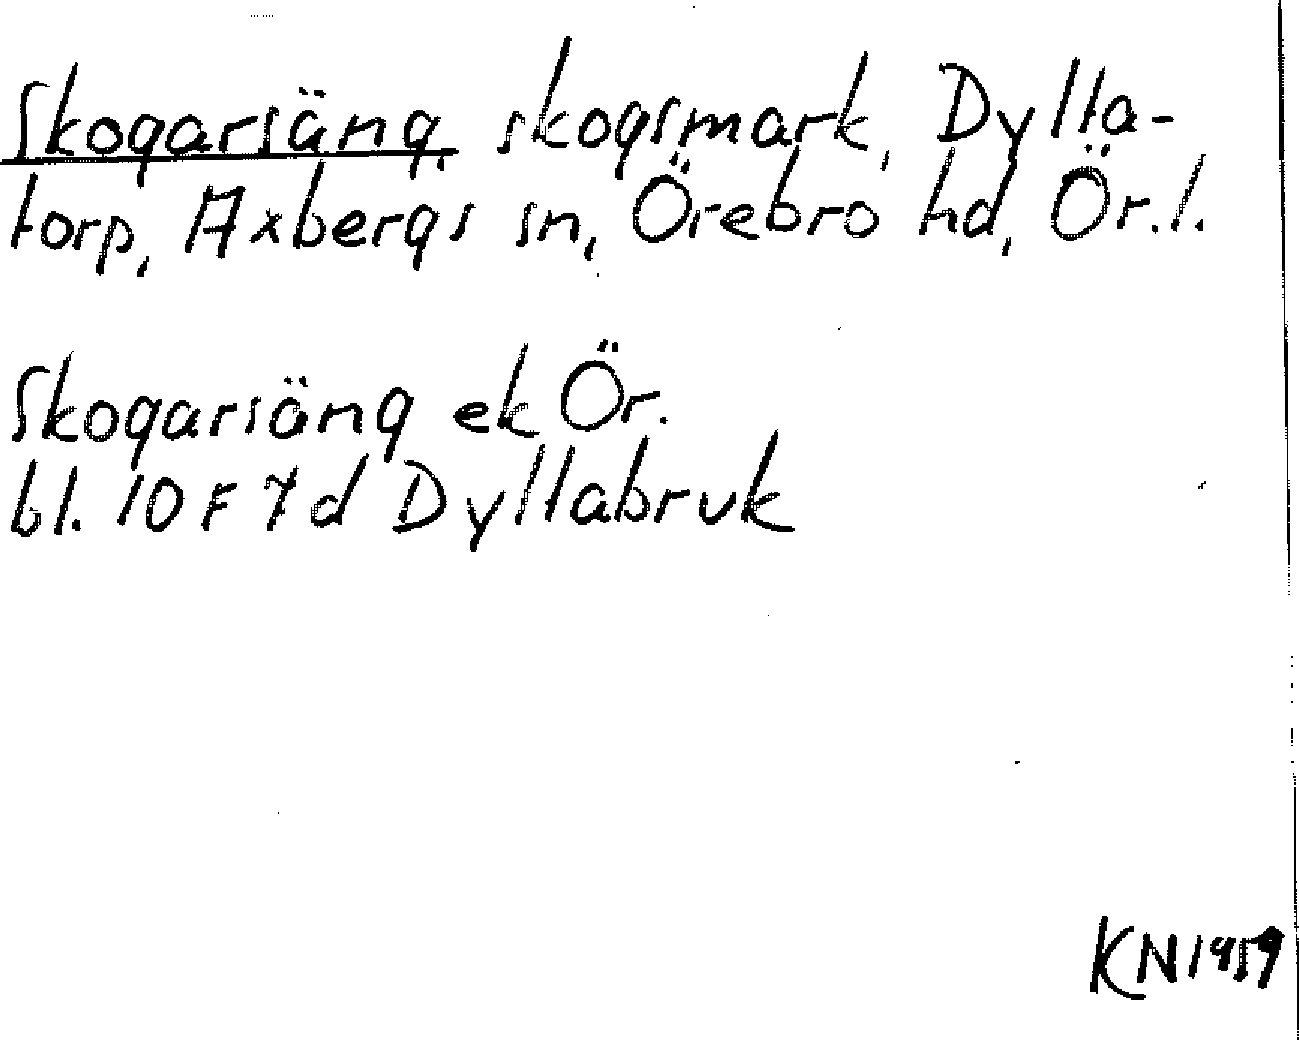 Skogarsäng, skogsmark, Dylla-
torp, Axbergs sn, Örebro hd, Ör.l.
Skogarsäng ek Ör.
bl. 10 F 7d Dyllabruk
KN 1959